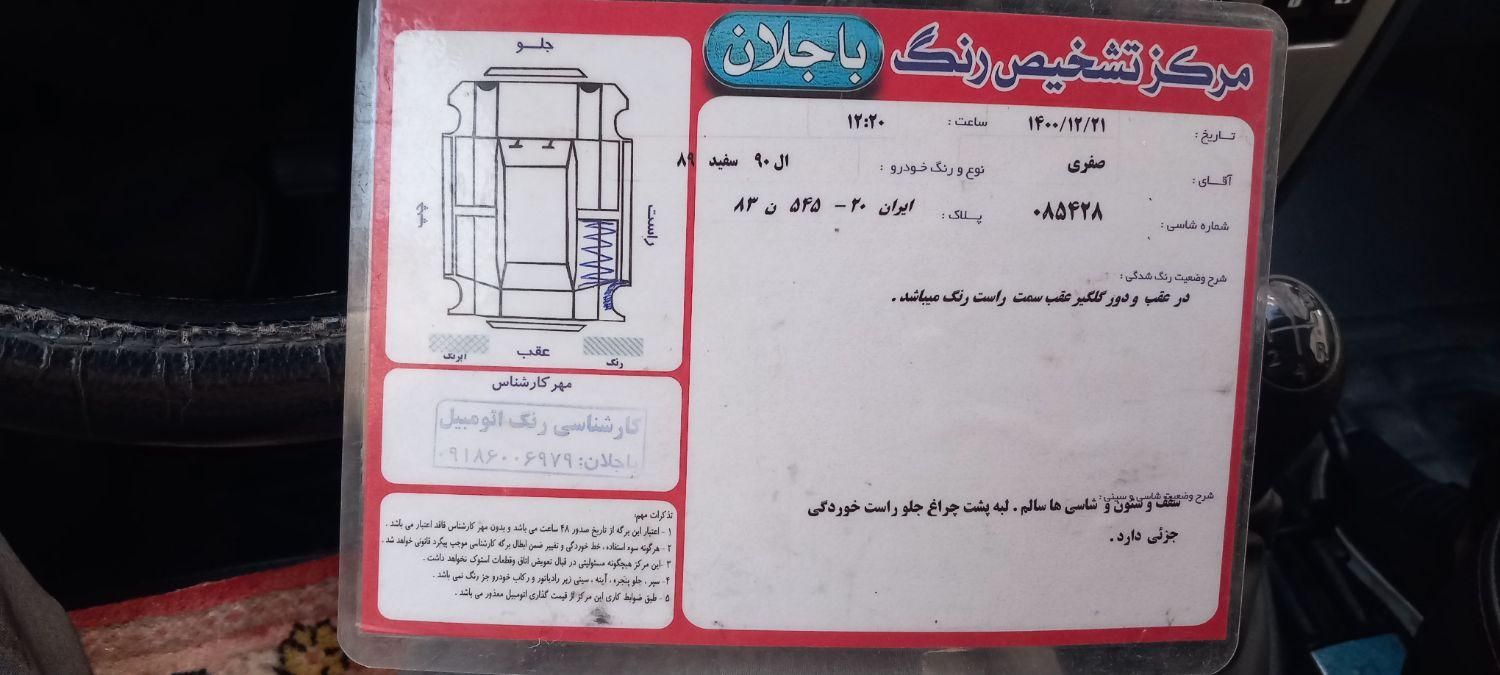 مرکز تشخیص رنگ باجلان
تاریخ : ۱۴۰۰/۱۲/۲۱ ساعت : ۱۲:۲۰
آقای : صفری نوع و رنگ خودرو : ال ۹۰ سفید ۸۹
شماره شاسی : ۰۸۵۴۲۸ پلاک : ایران ۲۰ - ۵۴۵ ن ۸۳
شرح وضعیت رنگ شدگی :
در عقب و دور گلگیر عقب سمت راست رنگ میباشد .
شرح وضعیت شاسی و سینی :
سقف و ستون و شاسی ها سالم . لبه پشت چراغ جلو راست خوردگی
جزئی دارد .
جلو
راست
عقب
رنگ
مهر کارشناس
کارشناسی رنگ اتومبیل
باجلان: ۰۹۱۸۶۰۰۶۹۷۹
تذکرات مهم:
۱ - اعتبار این برگه از تاریخ صدور ۴۸ ساعت می باشد و بدون مهر کارشناس فاقد اعتبار می باشد .
۲ - هرگونه سوء استفاده ، خط خوردگی و تغییر ضمن ابطال برگه کارشناسی موجب پیگرد قانونی خواهد شد .
۳ - این مرکز هیچگونه مسئولیتی در قبال تعویض اتاق وقطعات استوک نخواهد داشت .
۴ - سپر ، جلو پنجره ، آینه ، سینی زیر رادیاتور و رکاب خودرو جز رنگ نمی باشد .
۵ - طبق ضوابط کاری این مرکز از قیمت گذاری اتومبیل معذور می باشد .